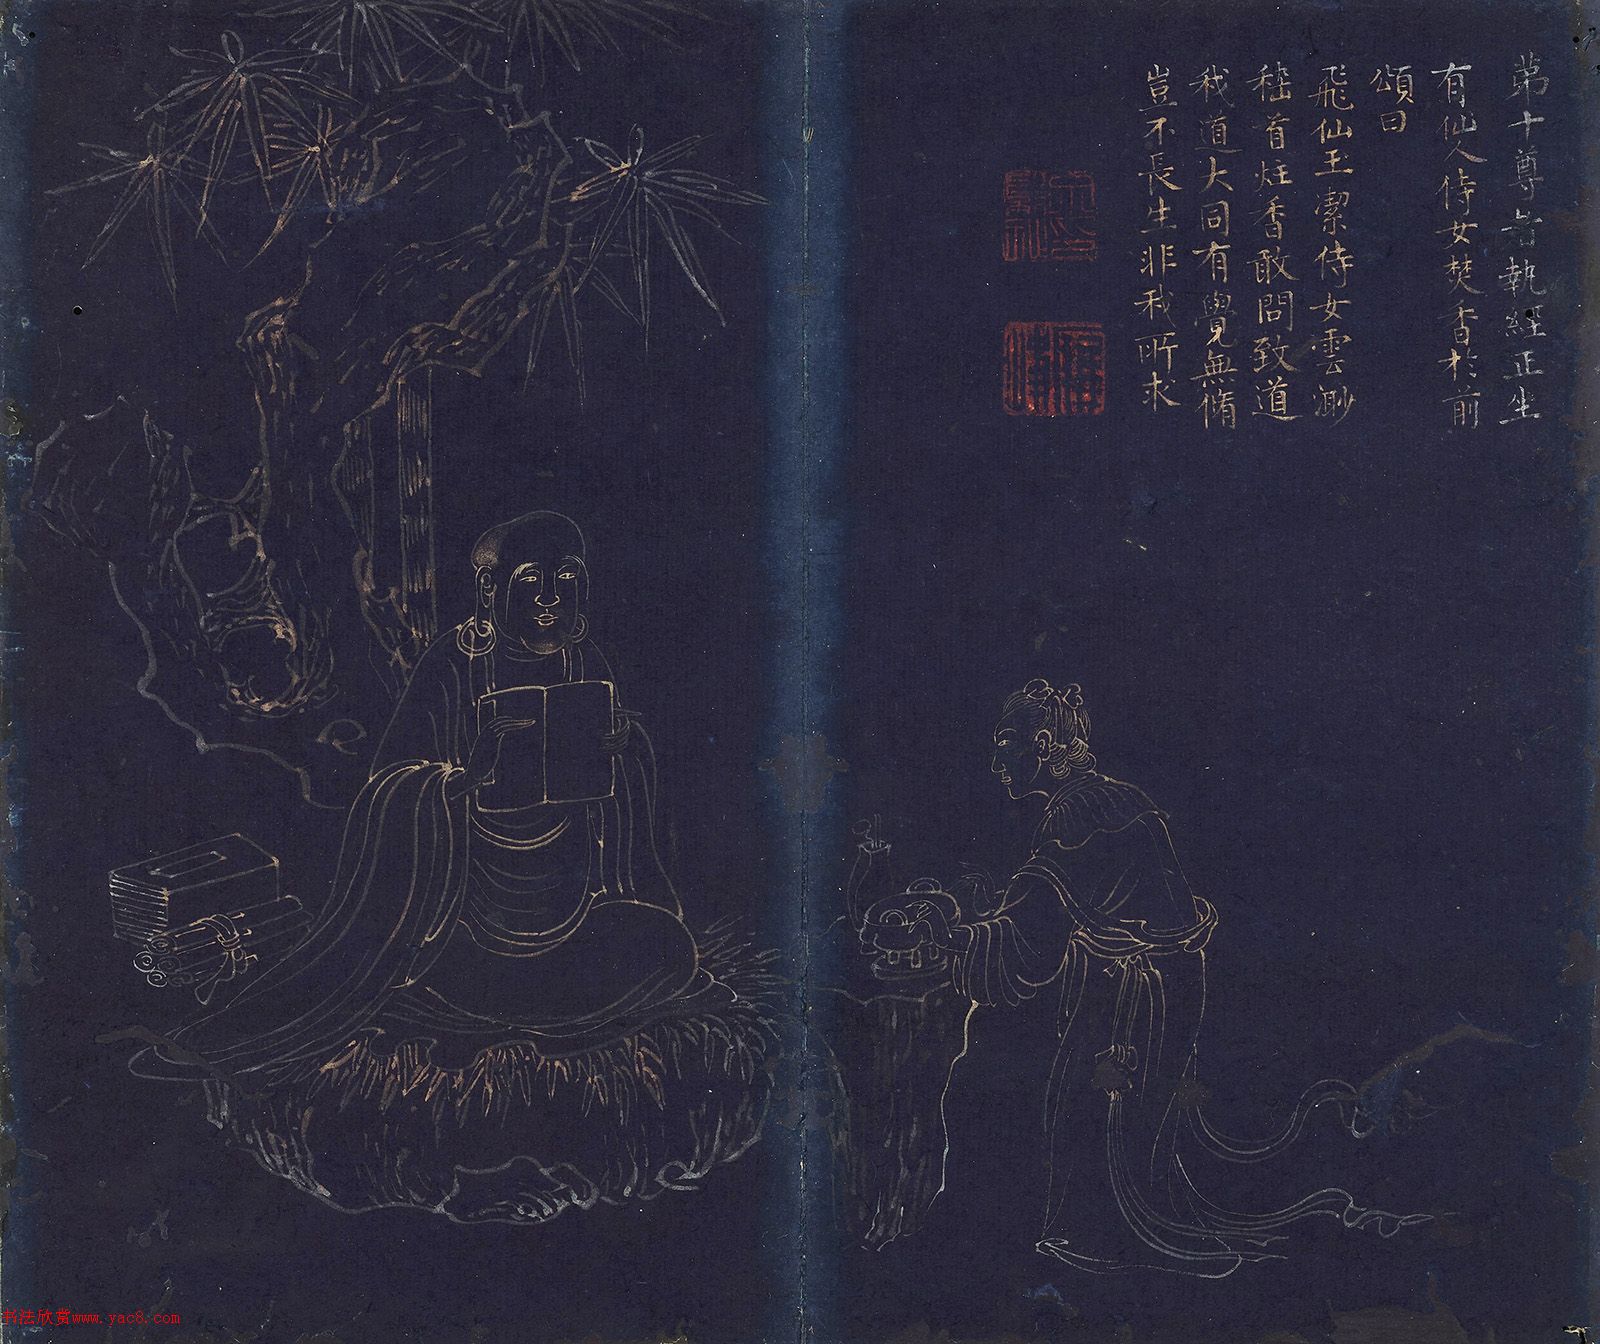 第十尊者執經正坐
有仙人侍女焚香於前
頌曰
飛仙玉潔侍女雲渺
稽首炷香敢問致道
我道大同有覺無脩
豈不長生非我所求
书法欣赏www.yac8.com